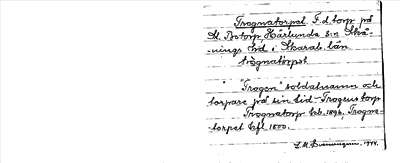 Trognatorpet. F.d. torp på
St. Botorp, Härlunda s:n Skå-
nings hd i Skarab. län
trognatórpet
"Trogen" soldatnamn och
torpare på sin tid - Trogens torp
Trognatorp Eb. 1896, Trogna-
torpet Gfl 1800.
L.M. 1944.